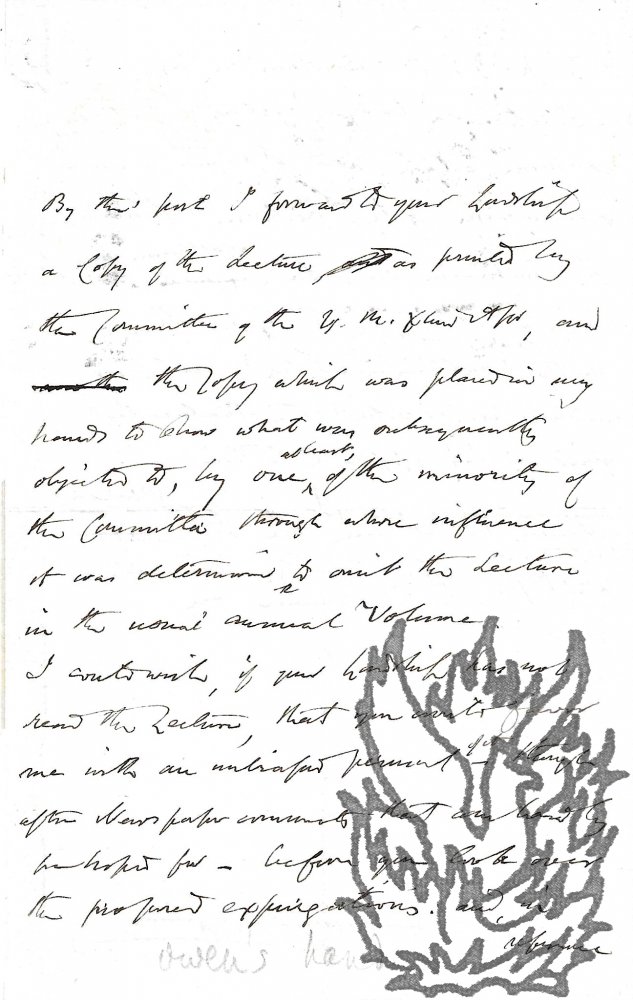 By this post I forward to your Lordship
a Copy of the Lecture, as printed by
the Committee of the Y. M. Xtian Assn, and
the Copy which was placed in my
hands to show what was subsequently
objected to, by one, at least, of the minority of
the Committee through whose influence
it was determined to omit the Lecture
in the usual annual Volume.
I could wish, if your Lordship has not
read the Lecture, that you would favor
me with an unbiased perusal of it - though
after Newspaper comments that can hardly
be hoped for - before you look over
the proposed expurgations. and, in
reference
Owen's hand